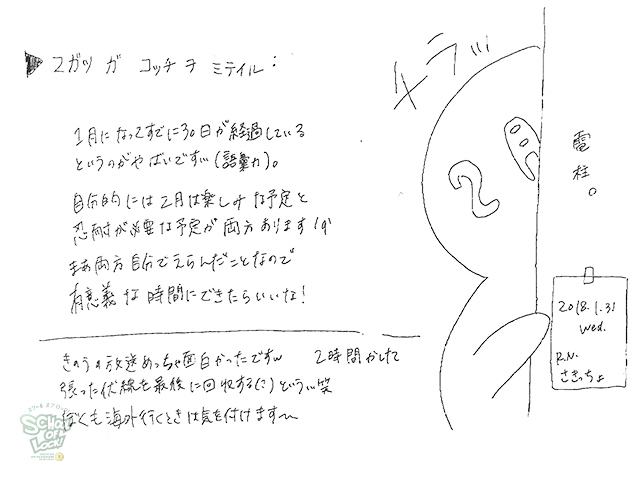 ▶ 2ガツ ガ コッチ ヲ ミテイル:
1月になってすでに30日が経過している
というのがやばいですw(語彙力)。
自分的には2月は楽しみな予定と
忍耐が必要な予定が両方ありますが
まあ両方自分でえらんだことなので
有意義な時間にできたらいいな!
きのうの放送めっちゃ面白かったですw 2時間かけて
張った伏線を最後に回収する(?)というw笑
ぼくも海外行くときは気を付けます〜
チラッ
2
電柱。
2018.1.31
Wed.
R.N.
さきっちょ
SCHOOL OF LOCK!